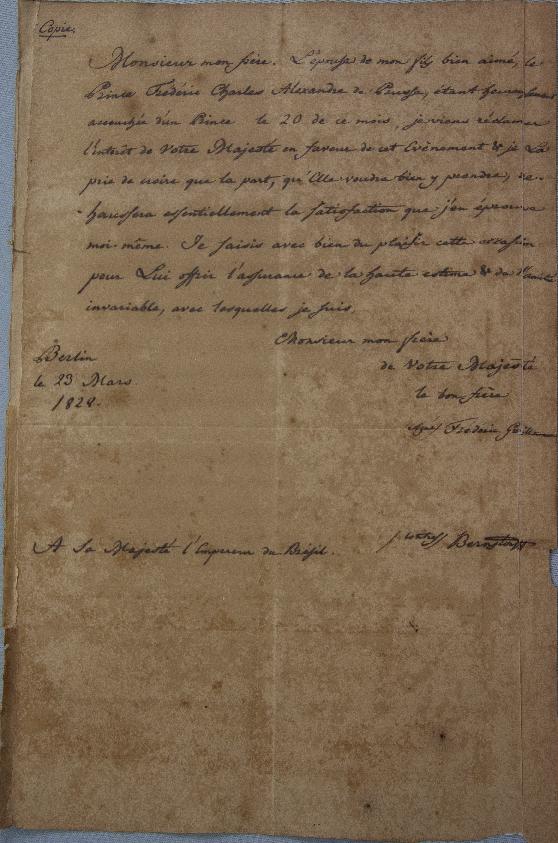 Copie.
Monsieur mon frère. L'épouse de mon fils bien aimé, le
Prince Frédéric Charles Alexandre de Prusse, étant heureusement
accouchée d'un Prince le 20 de ce mois, je viens réclamer
l'intérêt de Votre Majesté en faveur de cet Evénement & je La
prie de croire que la part, qu'Elle voudra bien y prendre, re-
haussera essentiellement la satisfaction que j'en éprouve
moi-même. Je saisis avec bien du plaisir cette occasion
pour Lui offrir l'assurance de la haute estime & de l'amitié
invariable, avec lesquelles je suis,
Monsieur mon frère
de Votre Majesté
le bon frère
Berlin
le 23 Mars
1828.
signé Frédéric Guillaume
contres. Bernstorff
A Sa Majesté l'Empereur du Brésil.